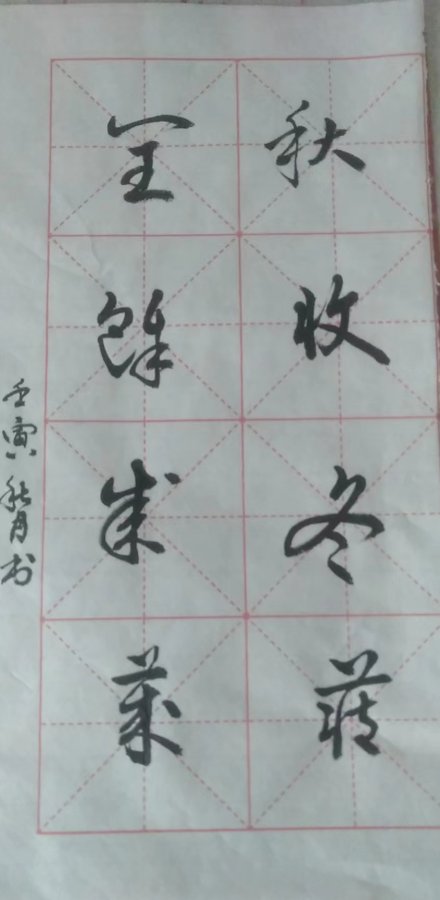 秋收冬藏
閏餘成歲
壬寅秋月书